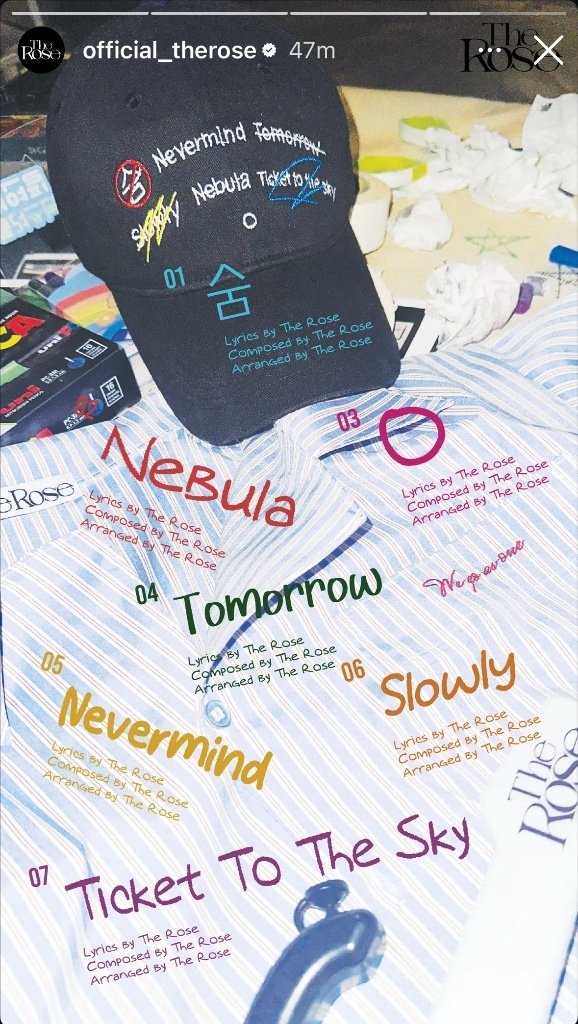 official_therose
47m
The
Rose
The
Rose
Nevermind Tomorrow
숨
Nebula Ticket to the sky
Slowly
01
숨
Lyrics By The Rose
Composed By The Rose
Arranged By The Rose
Nebula
Lyrics By The Rose
Composed By The Rose
Arranged By The Rose
03
O
Lyrics By The Rose
Composed By The Rose
Arranged By The Rose
eRose
We go as one
04
Tomorrow
Lyrics By The Rose
Composed By The Rose
Arranged By The Rose
05
Nevermind
Lyrics By The Rose
Composed By The Rose
Arranged By The Rose
06
Slowly
Lyrics By The Rose
Composed By The Rose
Arranged By The Rose
The
Rose
07
Ticket To The Sky
Lyrics By The Rose
Composed By The Rose
Arranged By The Rose